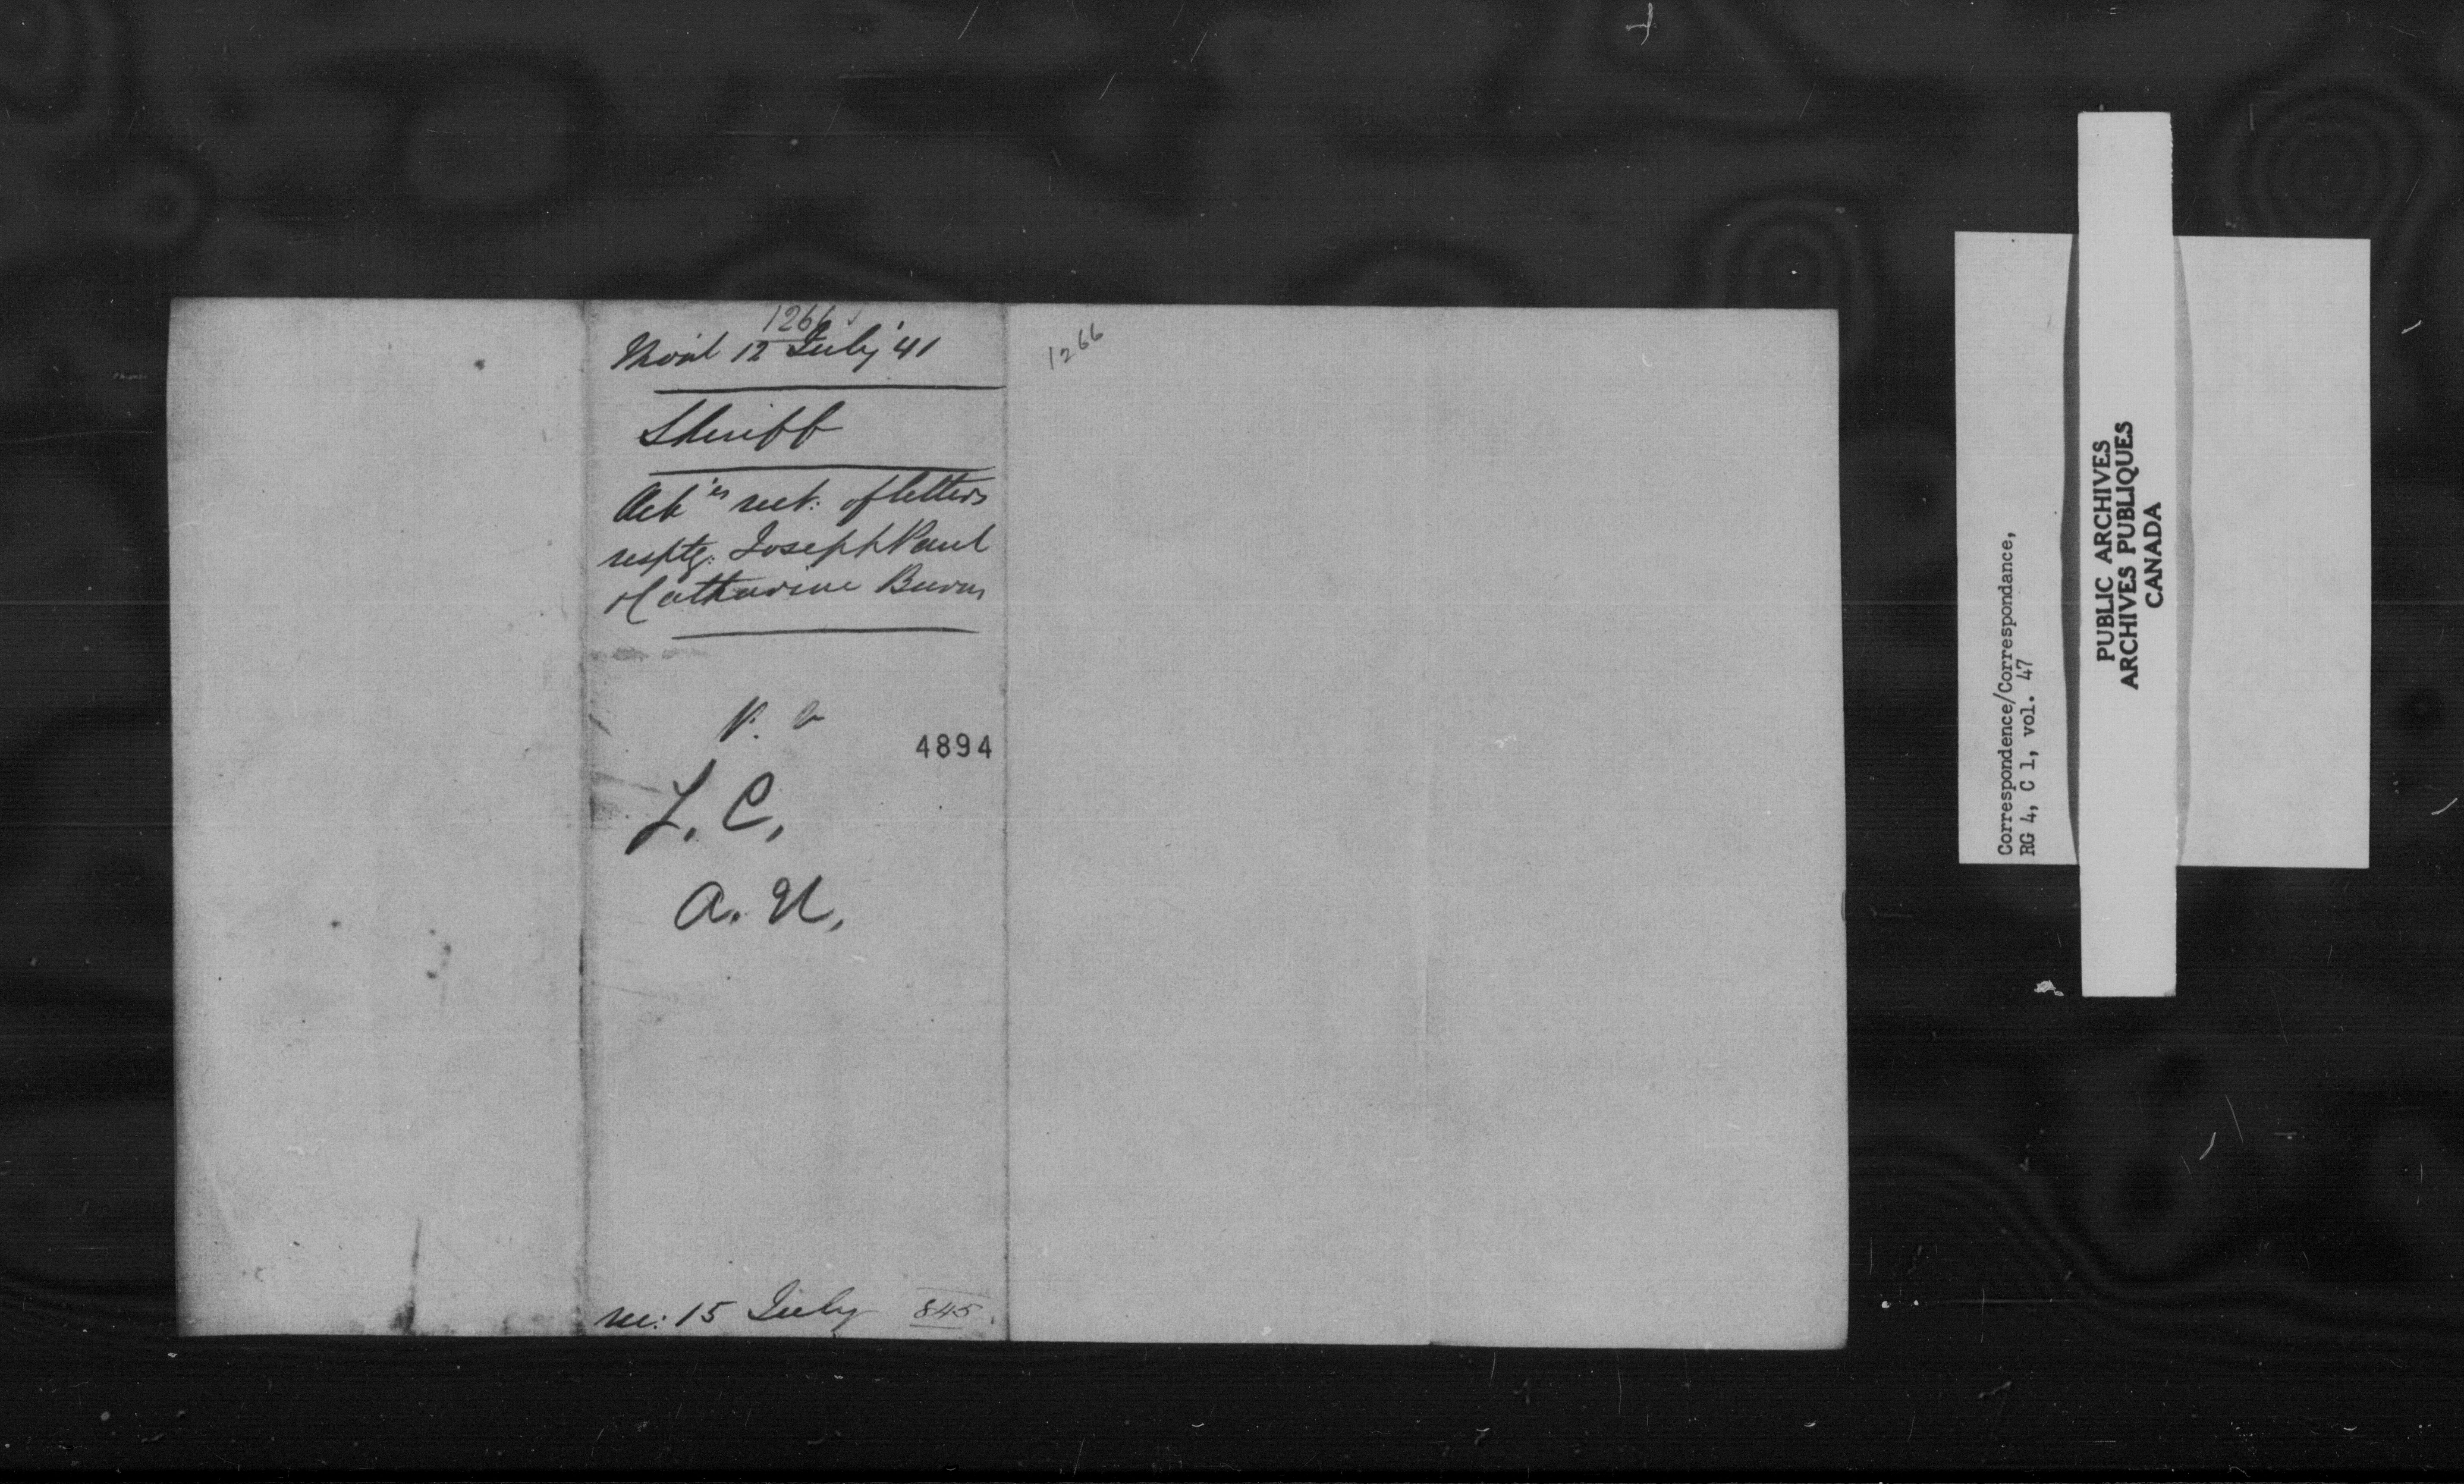 1266
Mo'al 12 July '41
Sheriff
Ack'es rect: of letters
resptg: Joseph Paul
& Catharine Burns
4894
L. C.
a. N.
rec: 15 July 845.
1266
Correspondence/Correspondance,
RG 4, C 1, vol. 47
PUBLIC ARCHIVES
ARCHIVES PUBLIQUES
CANADA